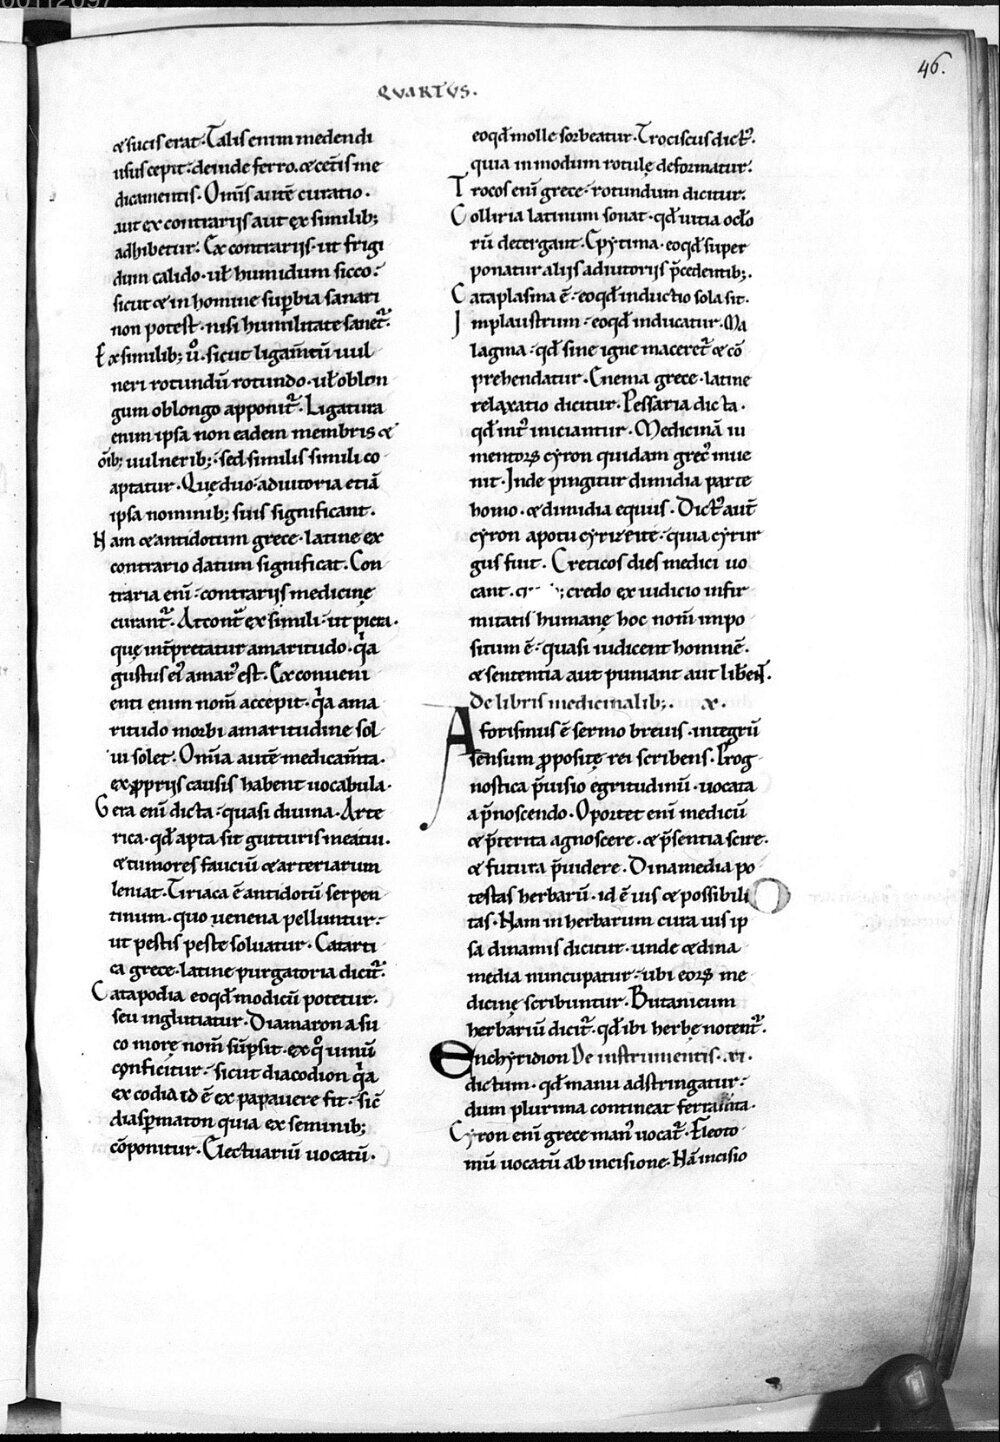 46.
QVARTVS.
& sucis erat. Talis enim medendi
usus cepit. deinde ferro. & cet̄is me
dicamentis. Om̄is aute curatio.
aut ex contrariis aut ex similib;
adhibetur. Ex contrariis. ut frigi
dum calido. ul humidum sicco.
sicut & in homine supbia sanari
non potest. nisi humilitate sanet̄.
Ex similib; u̇. sicut ligam̄tū uul
neri rotundū rotundo. ul oblon
gum oblongo apponit̄. Ligatura
enim ipsa non eadem membris &
oīb; uulnerib;. sed similis simili co
aptatur. Quę duo adiutoria etiā
ipsa nominib; suis significant.
Nam & antidotum grece. latine ex
contrario datum significat. Con
traria eni contrariis medicinę
curant̄. At cont̄ ex simili. ut picra.
quę int̄pretatur amaritudo. qͥa
gustus ei᾽ amar᾽ est. Ex conueni
enti enim nom̄ accepit. qͥa ama
ritudo morbi amaritudine sol
ui solet. Om̄ia aute medicam̄ta.
ex ppriis causis habent uocabula.
Gera eni dicta. quasi diuina. Arte
rica. qd apta sit gutturis meatui.
& tumores fauciū & arteriarum
leniat. Tiriaca ē antidotū serpen
tinum. quo uenena pelluntur.
ut pestis peste soluatur. Catarti
ca grece. latine purgatoria dicit̄.
Catapodia eo qd modicū potetur.
seu inglutiatur. Diamaron a su
co morę nom̄ sūpsit. ex qͦ uinū
conficitur. sicut diacodion qͥa
ex codia id ē ex papauere fit. sic
diaspmaton quia ex seminib;
cōponitur. Electuariū uocatū.
eo qd molle sorbeatur. Trociscus dict᾽.
quia in modum rotulę deformatur.
Trocos eni grece. rotundum dicitur.
Colliria latinum sonat. qd uitia oclo
rū detergant. Epytima. eo qd super
ponatur aliis adiutoriis p̄cedentib;.
Cataplasma ē. eo qd inductio sola sit.
Implaustrum. eo qd inducatur. Ma
lagma. qd sine igne maceret̄ & cō
prehendatur. Enema grece. latine
relaxatio dicitur. Pessaria dicta.
qd int᾽ iniciantur. Medicinā iu
mentoꝝ cyron quidam grec᾽ inue
nit. Inde pingitur dimidia parte
homo. & dimidia equus. Dict᾽ aut
cyron apo tu cyrizeste. quia cyrur
gus fuit. Creticos dies medici uo
cant. credo ex iudicio infir
mitatis humanę hoc nom̄ impo
situm ē. quasi iudicent hominē.
& sententia aut puniant aut liberet̄.
De libris medicinalib;. x.
Aforismus ē sermo breuis. integrū
sensum ppositę rei scribens. Prog
nostica p̄uisio egritudinū. uocata
a p̄noscendo. Oportet eni medicū
& p̄terita agnoscere. & p̄sentia scire.
& futura p̄uidere. Dinamedia po
testas herbarū. id ē uis & possibili
tas. Nam in herbarum cura uis ip
sa dinamis dicitur. unde & dina
media nuncupatur. ubi eoꝝ me
dicinę scribuntur. Butanicum
herbariū dicit̄. qd ibi herbę notent̄.
Enchyridion De instrumentis. xi.
dictum. qd manu adstringatur.
dum plurima contineat ferram̄ta.
Cyron eni grece man᾽ uocat̄. Fleoto
mū uocatū ab incisione. Nā incisio